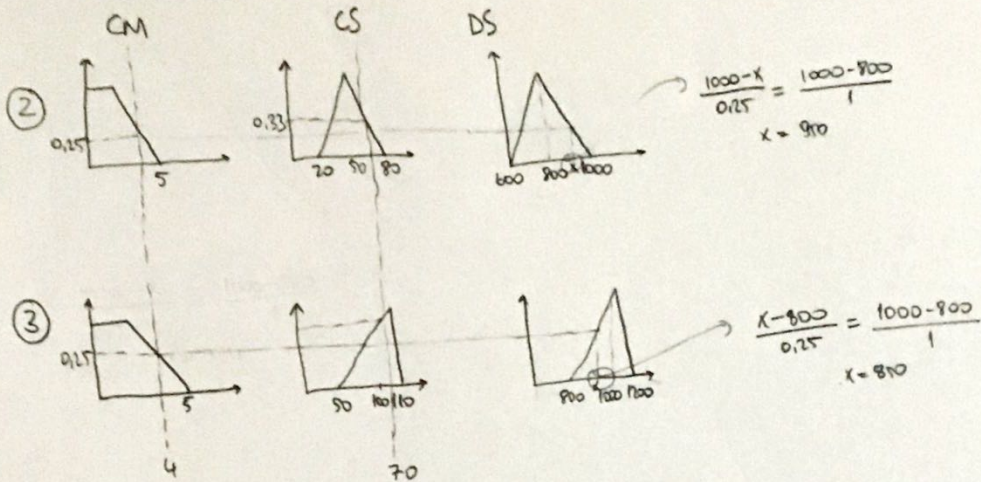 CM CS DS
②
0,25
5
0,33
20 50 80
600 800 x 1000
1000-x / 0,25 = 1000-800 / 1
x = 950
③
0,25
5
50 100 110
800 1000 1200
x-800 / 0,25 = 1000-800 / 1
x = 850
4
70